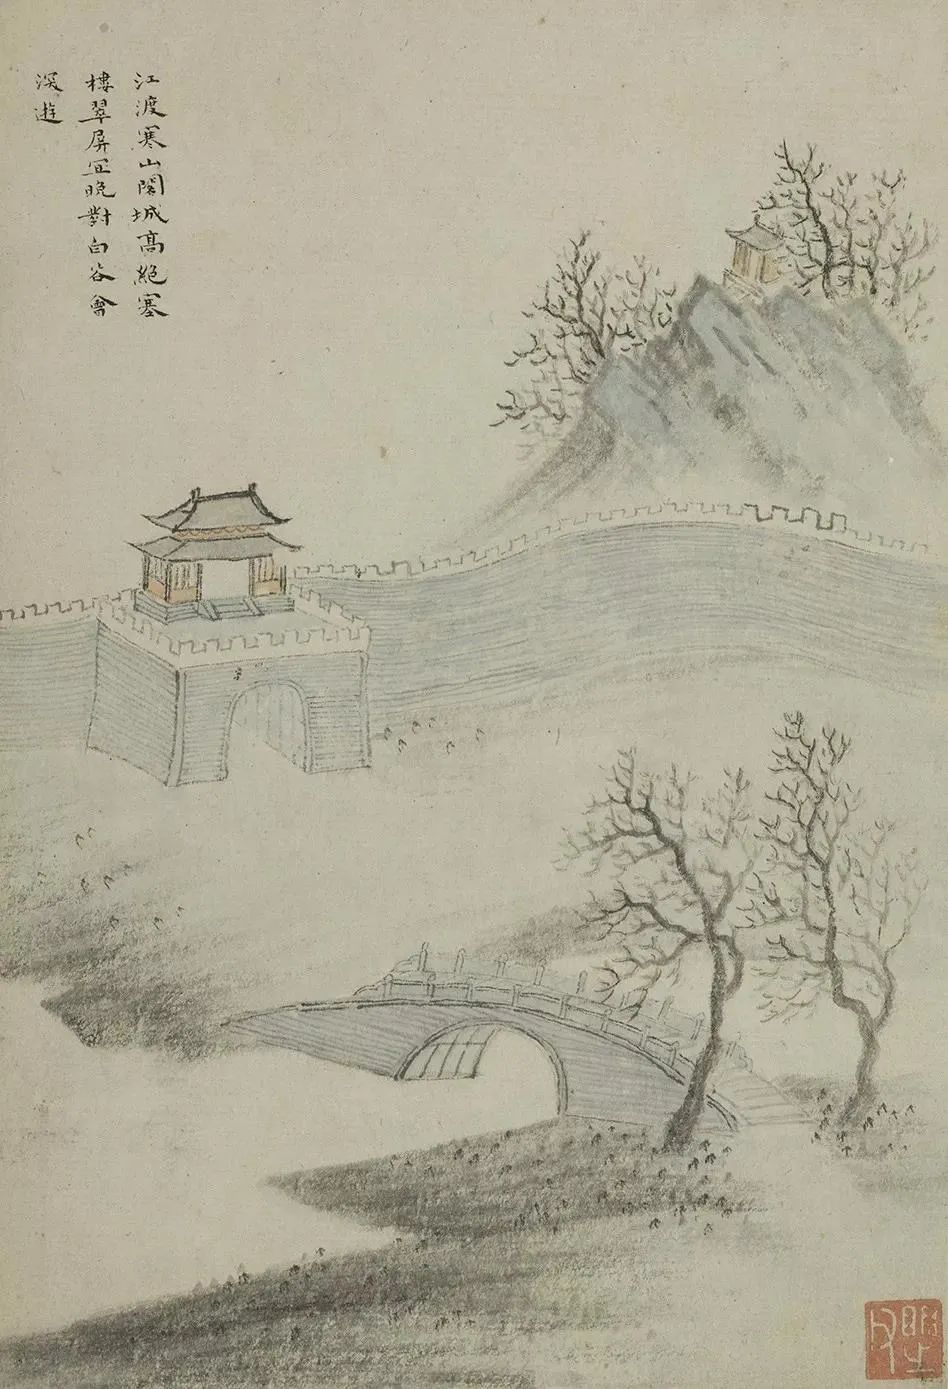 江渡寒山閣城高絶塞
樓翠屏宜晚對白谷會
深遊